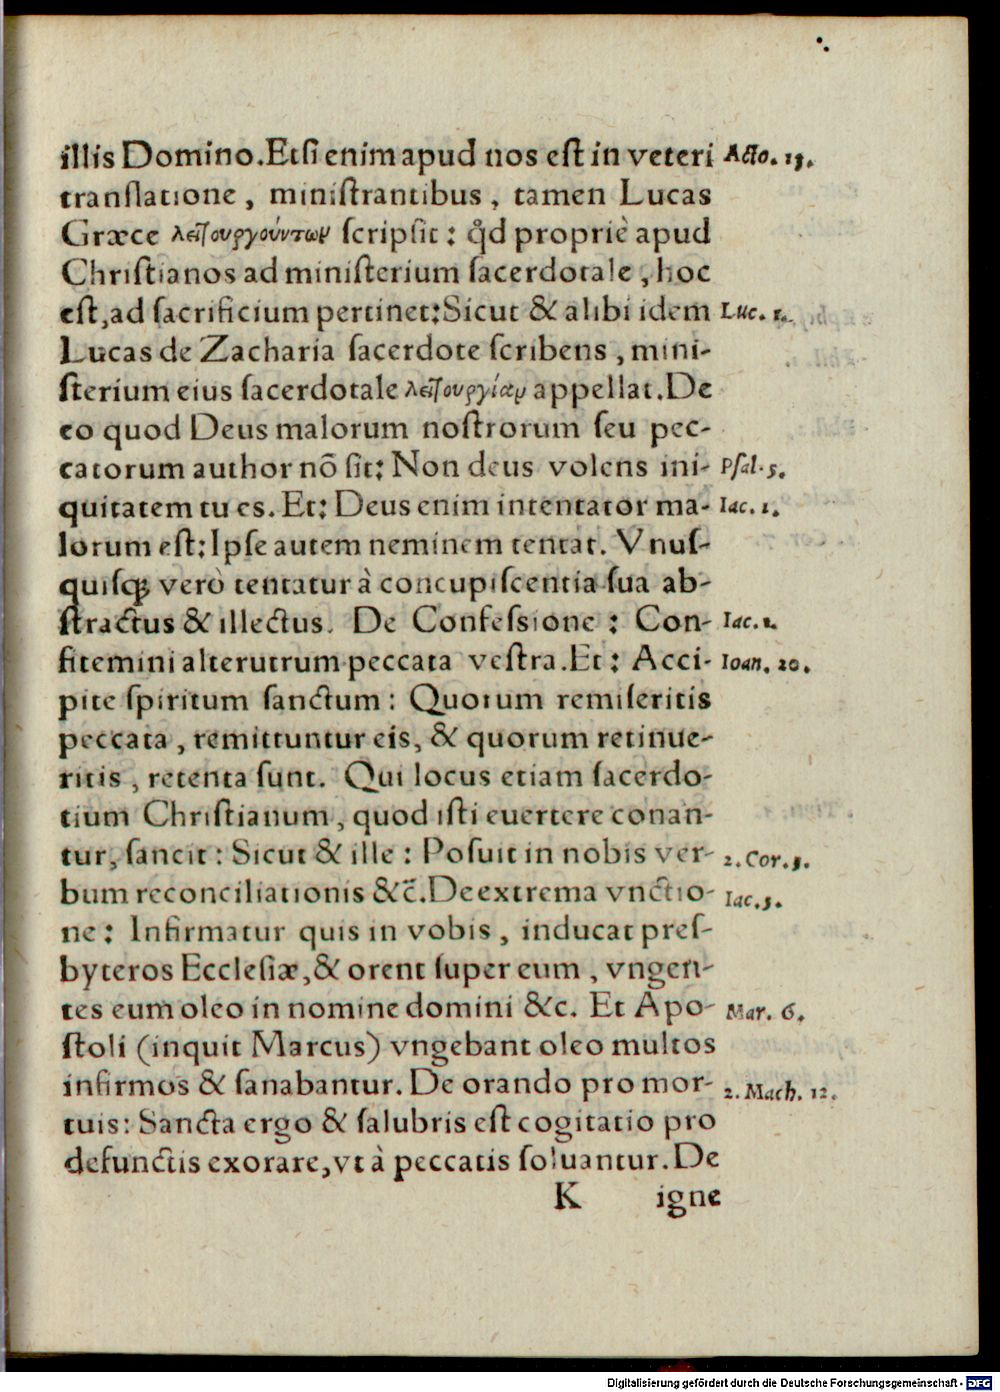 illis Domino.Etſi enim apud nos eſt in veteri Acto. 13.
tranſlatione, miniſtrantibus, tamen Lucas
Græce λειτουργούντων ſcripſit: qd̊ propriè apud
Chriſtianos ad miniſterium ſacerdotale, hoc
eſt,ad ſacrificium pertinet:Sicut & alibi idem Luc. 1.
Lucas de Zacharia ſacerdote ſcribens, mini-
ſterium eius ſacerdotale λειτουργίαν appellat.De
eo quod Deus malorum noſtrorum ſeu pec-
catorum author nō ſit: Non deus volens ini- Pſal. 5.
quitatem tu es. Et: Deus enim intentator ma- Iac. 1.
lorum eſt:Ipſe autem neminem tentat. Vnuſ-
quiſq; verò tentatur à concupiſcentia ſua ab-
ſtractus & illectus. De Confeſsione: Con- Iac.
fitemini alterutrum peccata veſtra.Et: Acci- Ioan. 20.
pite ſpiritum ſanctum: Quorum remiſeritis
peccata, remittuntur eis, & quorum retinue-
ritis, retenta ſunt. Qui locus etiam ſacerdo-
tium Chriſtianum, quod iſti euertere conan-
tur, ſancit: Sicut & ille: Poſuit in nobis ver- 2. Cor. 5.
bum reconciliationis &c̄.De extrema vnctio- Iac. 5.
ne: Infirmatur quis in vobis, inducat preſ-
byteros Eccleſiæ,& orent ſuper eum, vngen-
tes eum oleo in nomine domini &c. Et Apo- Mar. 6.
ſtoli (inquit Marcus) vngebant oleo multos
infirmos & ſanabantur. De orando pro mor- 2. Mach. 12.
tuis: Sancta ergo & ſalubris eſt cogitatio pro
defunctis exorare,vt à peccatis ſoluantur.De
K igne
Digitalisierung gefördert durch die Deutsche Forschungsgemeinschaft - DFG